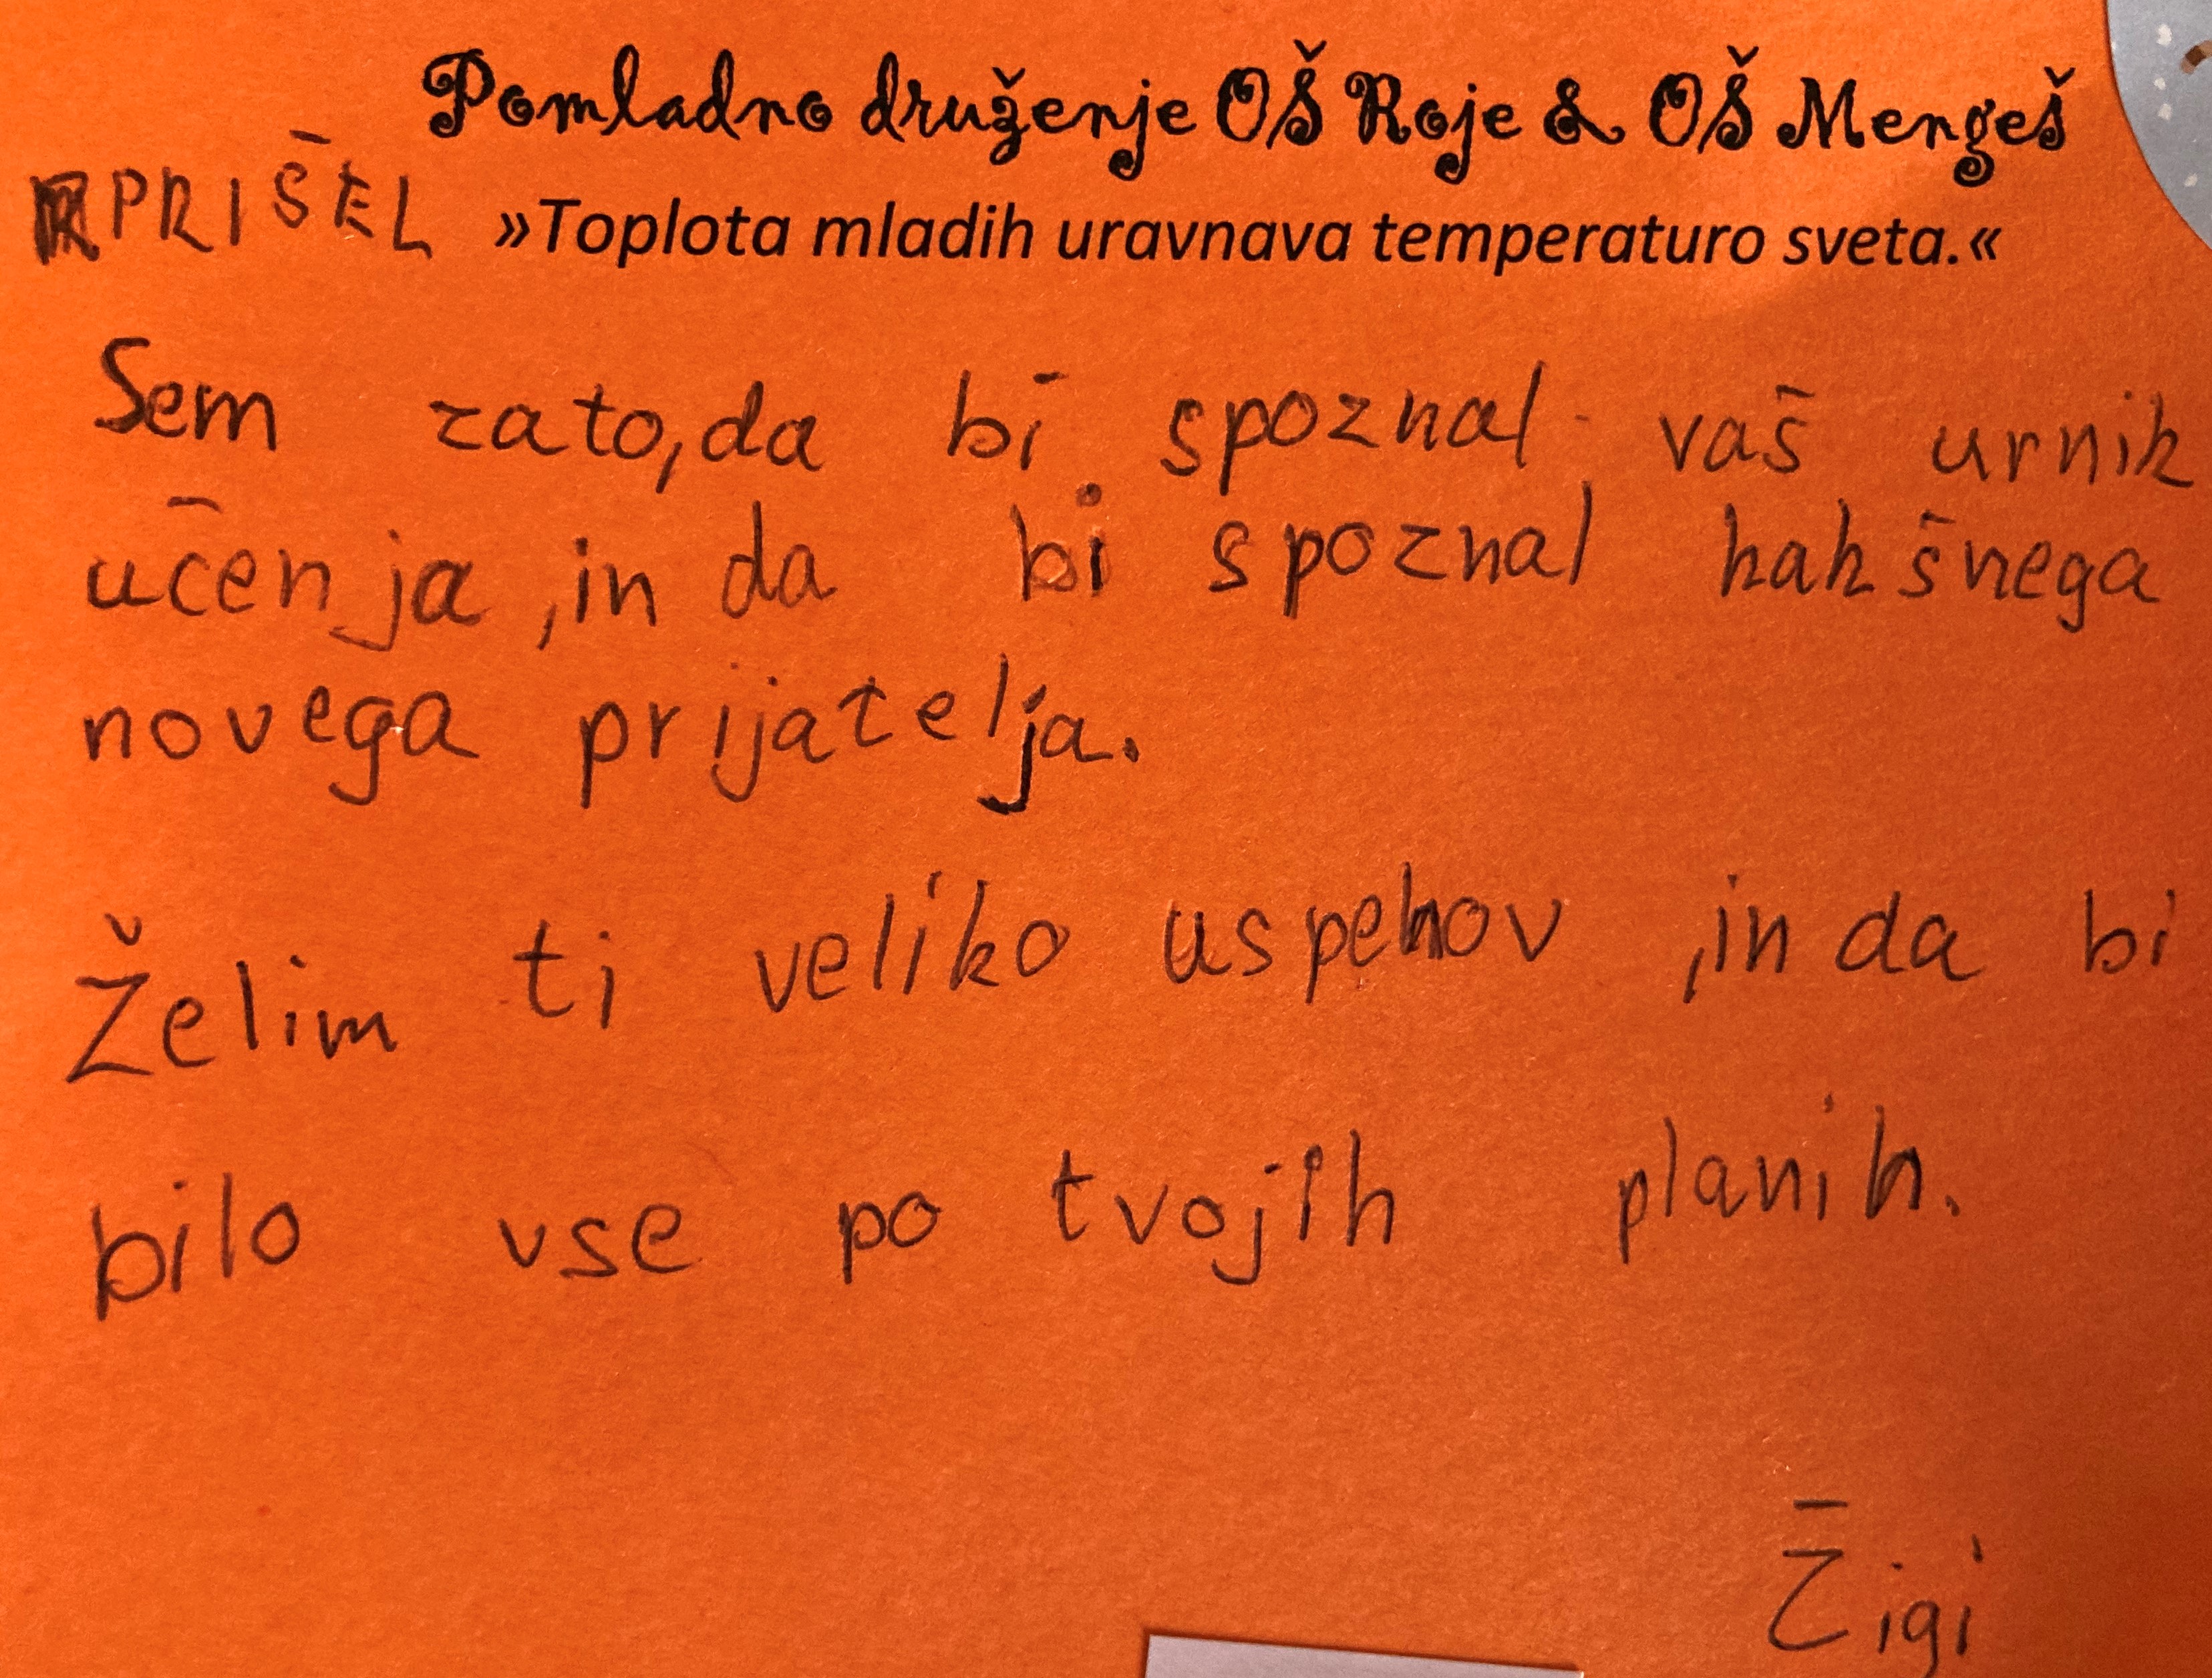 Pomladno druženje OŠ Roje & OŠ Mengeš
PRIŠEL »Toplota mladih uravnava temperaturo sveta.«
Sem zato, da bi spoznal vaš urnik
učenja, in da bi spoznal kakšnega
novega prijatelja.
Želim ti veliko uspehov, in da bi
bilo vse po tvojih planih.
Žigi